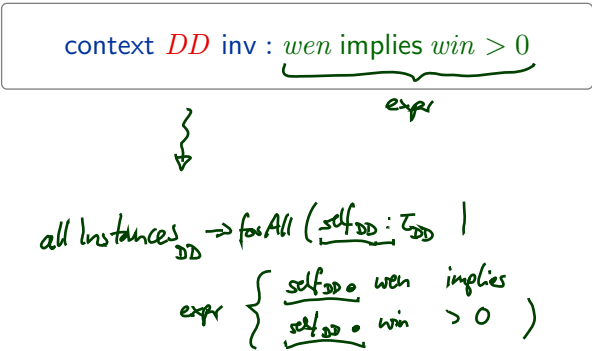 context DD inv : wen implies win > 0
expr
all Instances_DD -> forAll ( self_DD : τ_DD |
expr { self_DD . wen implies
self_DD . win > 0 )